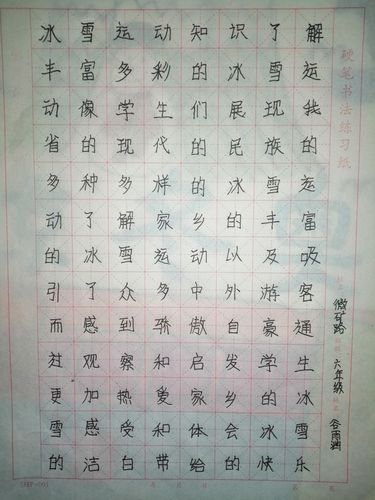 冰雪运动知识了解
丰富多彩的冰雪运
动像学生们展现我
省的现代的民族的
多种多样的冰雪运
动了解家乡的丰富
的冰雪运动以及吸
引了众多中外游客
而感到骄傲自豪通
过观察和启发学生
更加热爱家乡的冰
雪感受和体会冰雪
的洁白带给的快乐
硬笔书法练习纸
六年级
谷雨润
年 月 日